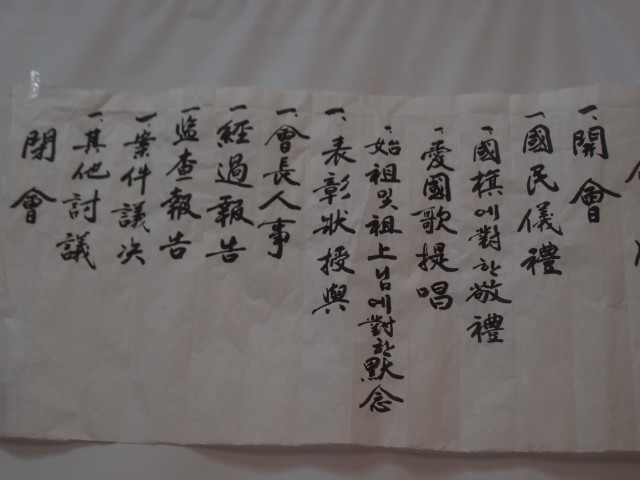 一、開會
一、國民儀禮
、國旗에對한敬禮
、愛國歌提唱
、始祖및祖上님에對한默念
一、表彰狀授與
一、會長人事
一、經過報告
一、監查報告
一、案件議决
一、其他討議
閉會